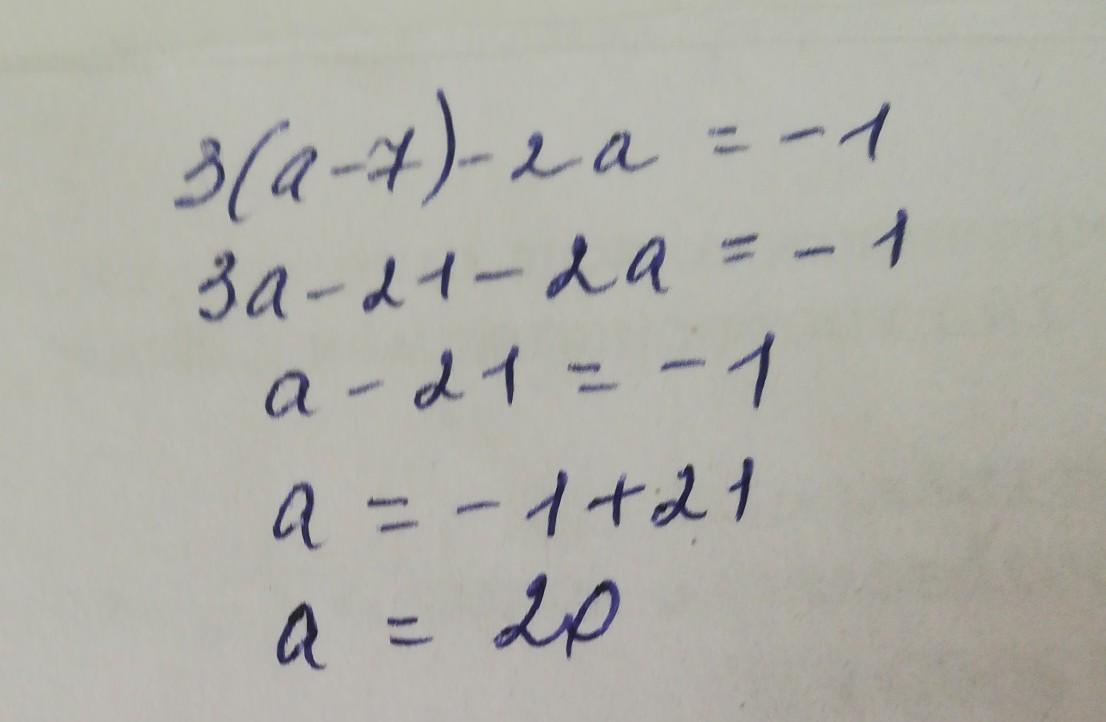 3(a-7)-2a = -1
3a-21-2a = -1
a-21 = -1
a = -1+21
a = 20